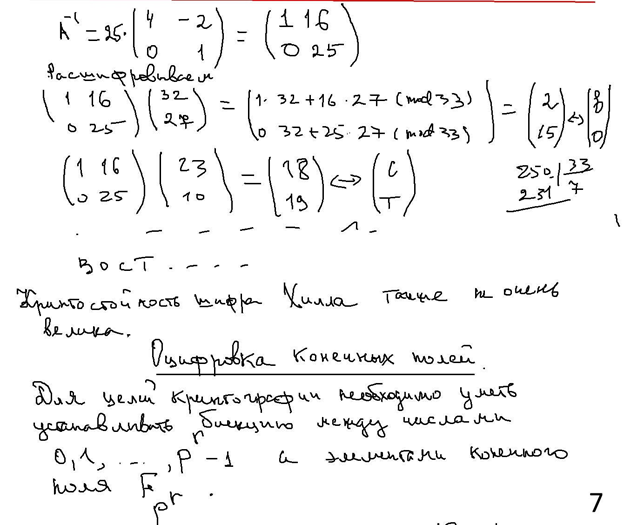 A⁻¹ = 25·(4 −2; 0 1) = (1 16; 0 25)
Расшифровываем
(1 16; 0 25)(32; 27) = (1·32+16·27 (mod 33); 0·32+25·27 (mod 33)) = (2; 15) ↔ (в; о)
(1 16; 0 25)(23; 10) = (18; 19) ↔ (с; т)
250 | 33
231 7
вост....
Криптостойкость шифра Хилла также не очень
велика.
Оцифровка конечных полей.
Для целей криптографии необходимо уметь
устанавливать биекцию между числами
0, 1, ..., pʳ − 1 и элементами конечного
поля F_pʳ.
7